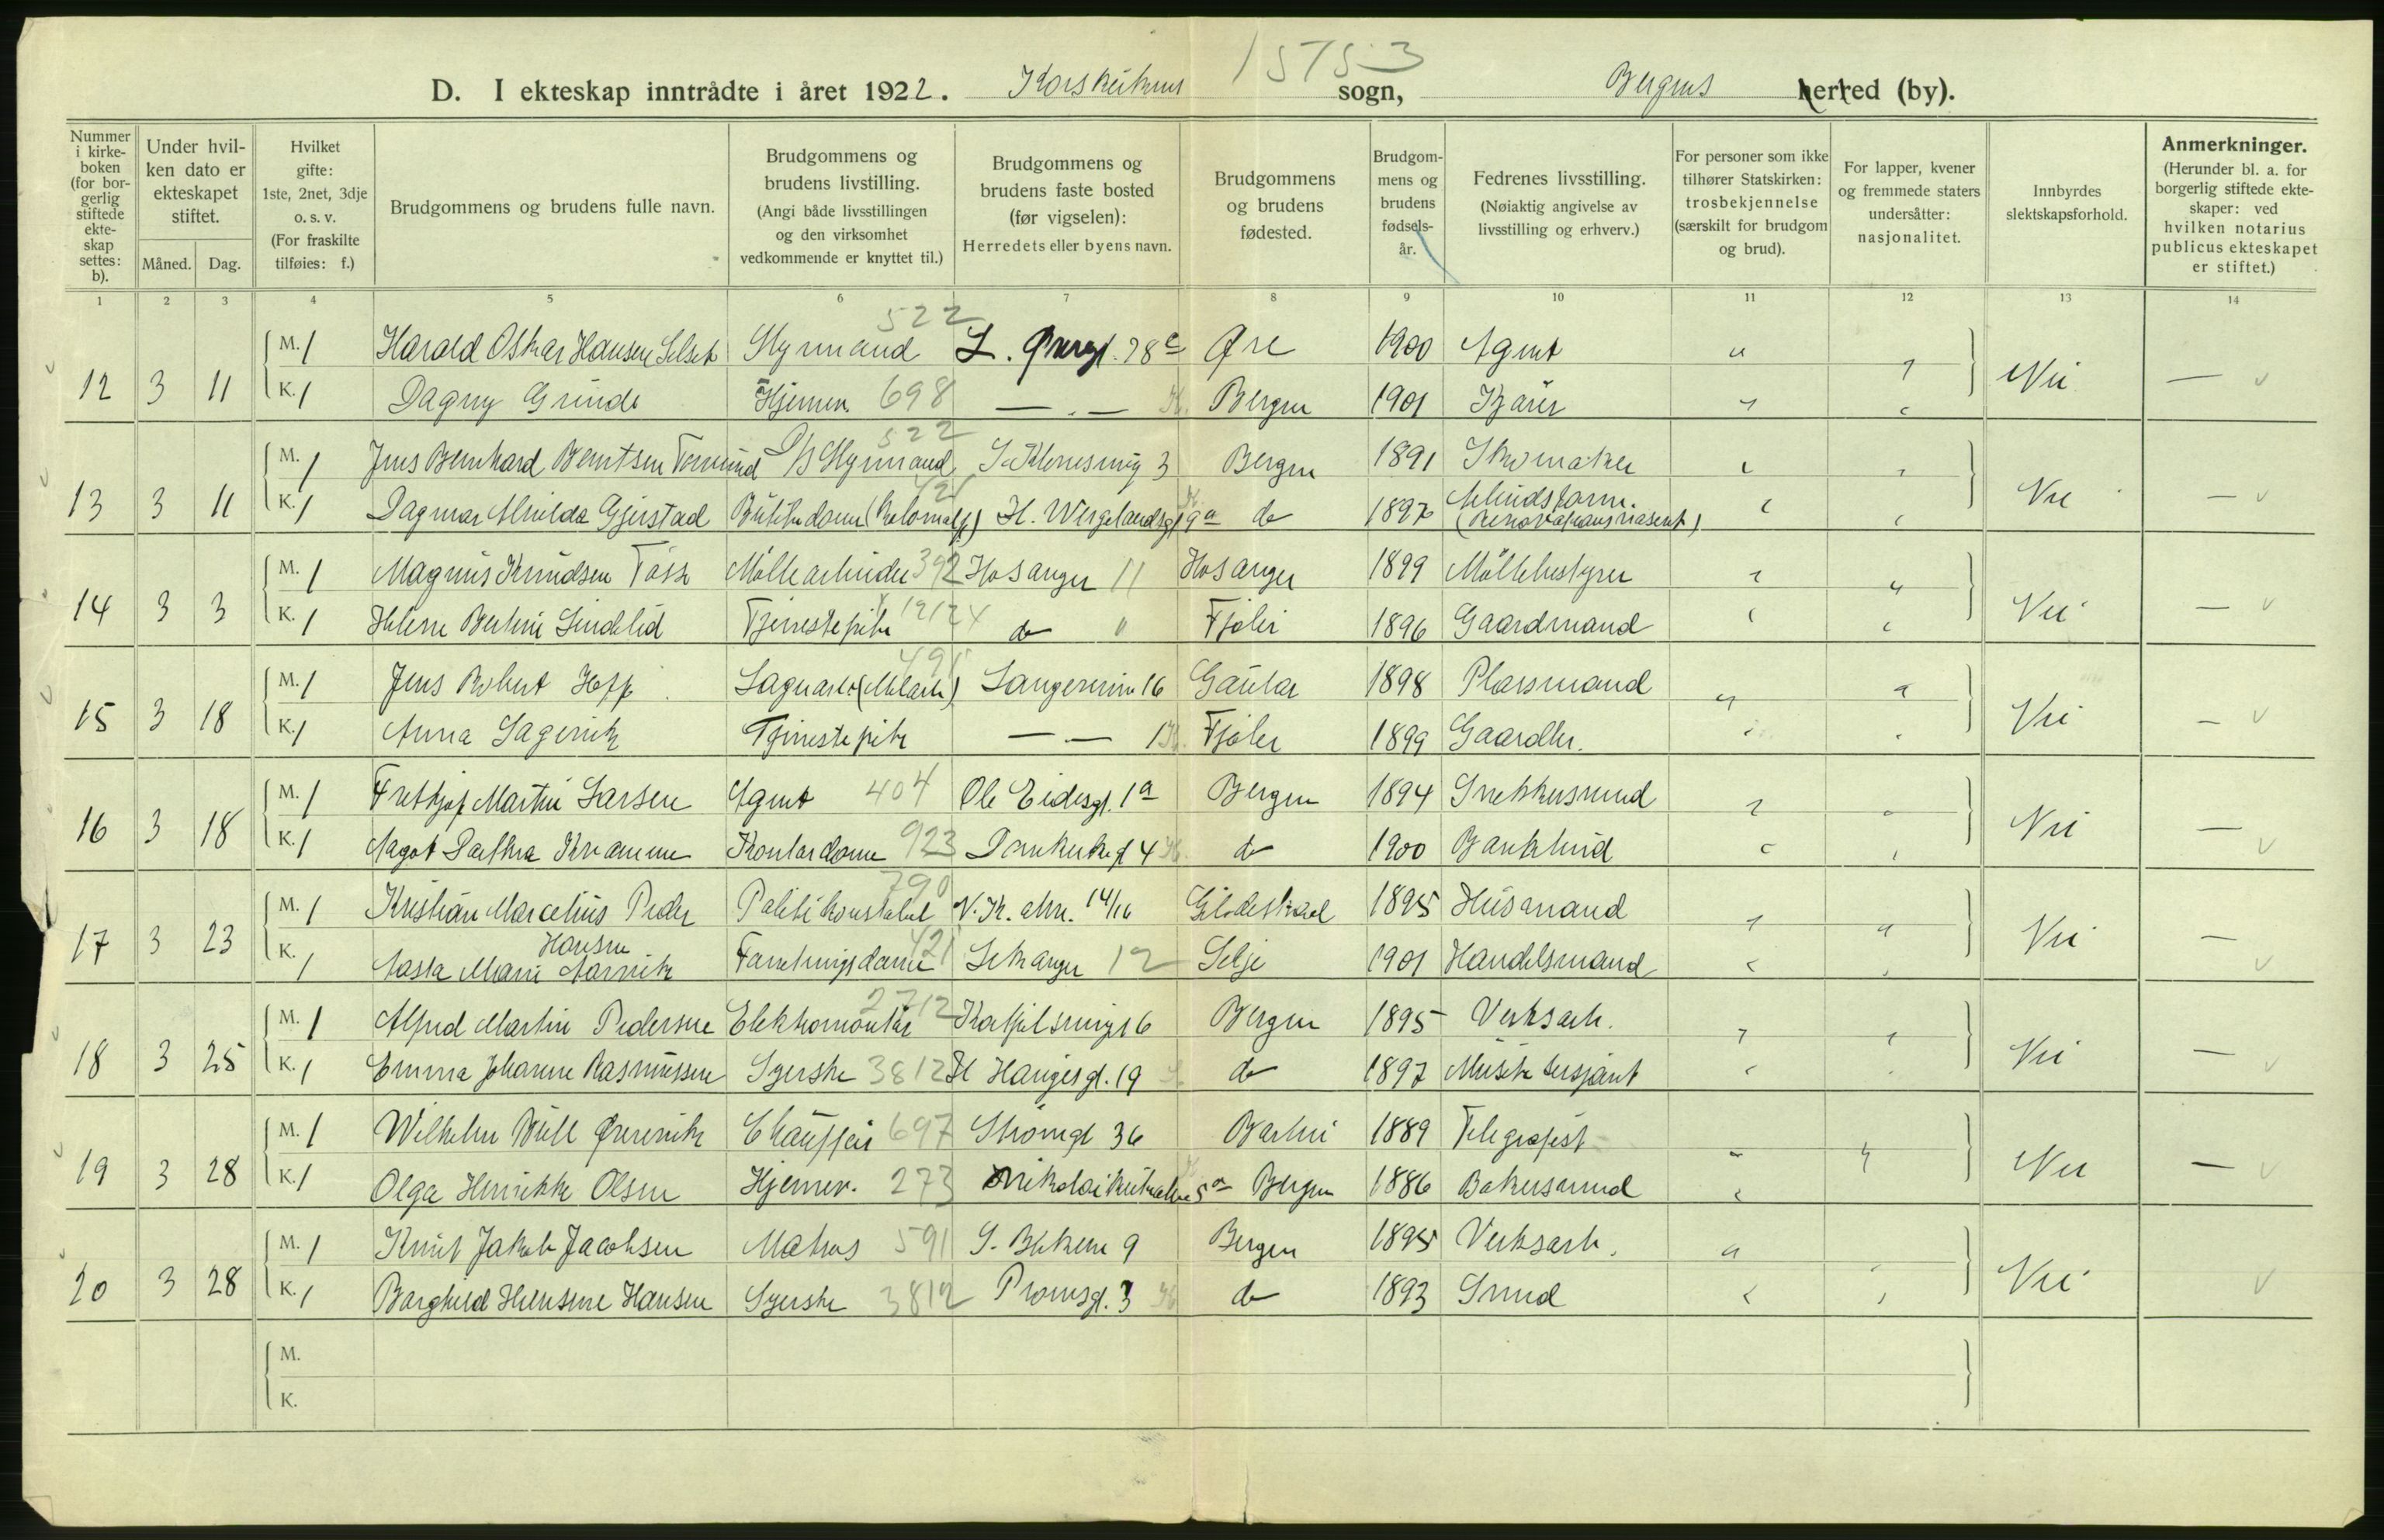 15753
D. I ekteskap inntrådte i året 1922. Korskirkens sogn, Bergens herred (by).
Nummer i kirkeboken (for borgerlig stiftede ekteskap settes: b).
Under hvilken dato er ekteskapet stiftet.
Måned. Dag.
Hvilket gifte: 1ste, 2net, 3dje o. s. v. (For fraskilte tilføies: f.)
Brudgommens og brudens fulle navn.
Brudgommens og brudens livstilling. (Angi både livsstillingen og den virksomhet vedkommende er knyttet til.)
Brudgommens og brudens faste bosted (før vigselen): Herredets eller byens navn.
Brudgommens og brudens fødested.
Brudgommens og brudens fødsels-år.
Fedrenes livsstilling. (Nøiaktig angivelse av livsstilling og erhverv.)
For personer som ikke tilhører Statskirken: trosbekjennelse (særskilt for brudgom og brud).
For lapper, kvener og fremmede staters undersåtter: nasjonalitet.
Innbyrdes slektskapsforhold.
Anmerkninger. (Herunder bl. a. for borgerlig stiftede ekteskaper: ved hvilken notarius publicus ekteskapet er stiftet.)
1 2 3 4 5 6 7 8 9 10 11 12 13 14
522
M. 1 Harald Oskar Hansen Selset Styrmand 28c Øre 1900 Agent " "
12 3 11 Nei —
K. 1 Dagny Grinde Hjemmev. 698 — . — Bergen 1901 " "
522
M. 1 Jens Bernhard Berntsen Styrmand 3 Bergen 1891 Skomaker " "
13 3 11 Nei —
K. 1 Dagmar Alvilda Gjerstad Butikkdame H. Wergelandsgt 9a do 1897 Arbeidsform. " "
M. 1 Magnus Knudsen Møllearbeider 392 Hosanger 11 Hosanger 1899 Møllebestyrer " "
14 3 3 Nei —
K. 1 Helene Tjenestepike 12124 do " Fjaler 1896 Gaardmand " "
491
M. 1 Jens Robert Hopp 16 Gaular 1898 Plassmand " "
15 3 18 Nei —
K. 1 Anna Tjenestepike — . — Fjaler 1899 Gaardbr. " "
M. 1 Frithjof Martin Larsen Agent 404 Ole Eidesgt. 1a Bergen 1894 Snekkersvend " "
16 3 18 Nei —
K. 1 Aagot Kontordame 923 Domkirkegt 4 do 1900 Bankbud " "
790
M. 1 Kristian Marcelius Peder Politikonstabel 14/16 Gildeskaal 1895 Husmand " "
17 3 23 Hansen 421 Nei —
K. 1 Aasta Marie Forretningsdame 12 Selje 1901 Handelsmand " "
2712
M. 1 Alfred Martin Pedersen Elektromontør 6 Bergen 1895 Verksarb. " "
18 3 25 Nei —
K. 1 Emma Johanne Rasmussen Syerske 3812 Haugesgt. 19 do 1897 Musiksersjant " "
M. 1 Wilhelm Bull Chauffør 697 Strømgt 36 1889 Telegrafist " "
19 3 28 Nei —
K. 1 Olga Henrikke Olsen Hjemmev. 273 Nikolaikirkealm 5a Bergen 1886 Bakersvend "
M. 1 Knut Jakob Jacobsen Matros 591 9 Bergen 1895 Verksarb. " "
20 3 28 Nei
K. 1 Borghild Hansen Syerske 3812 Promsgt. 3 do 1893 Smed " "
M.
K.